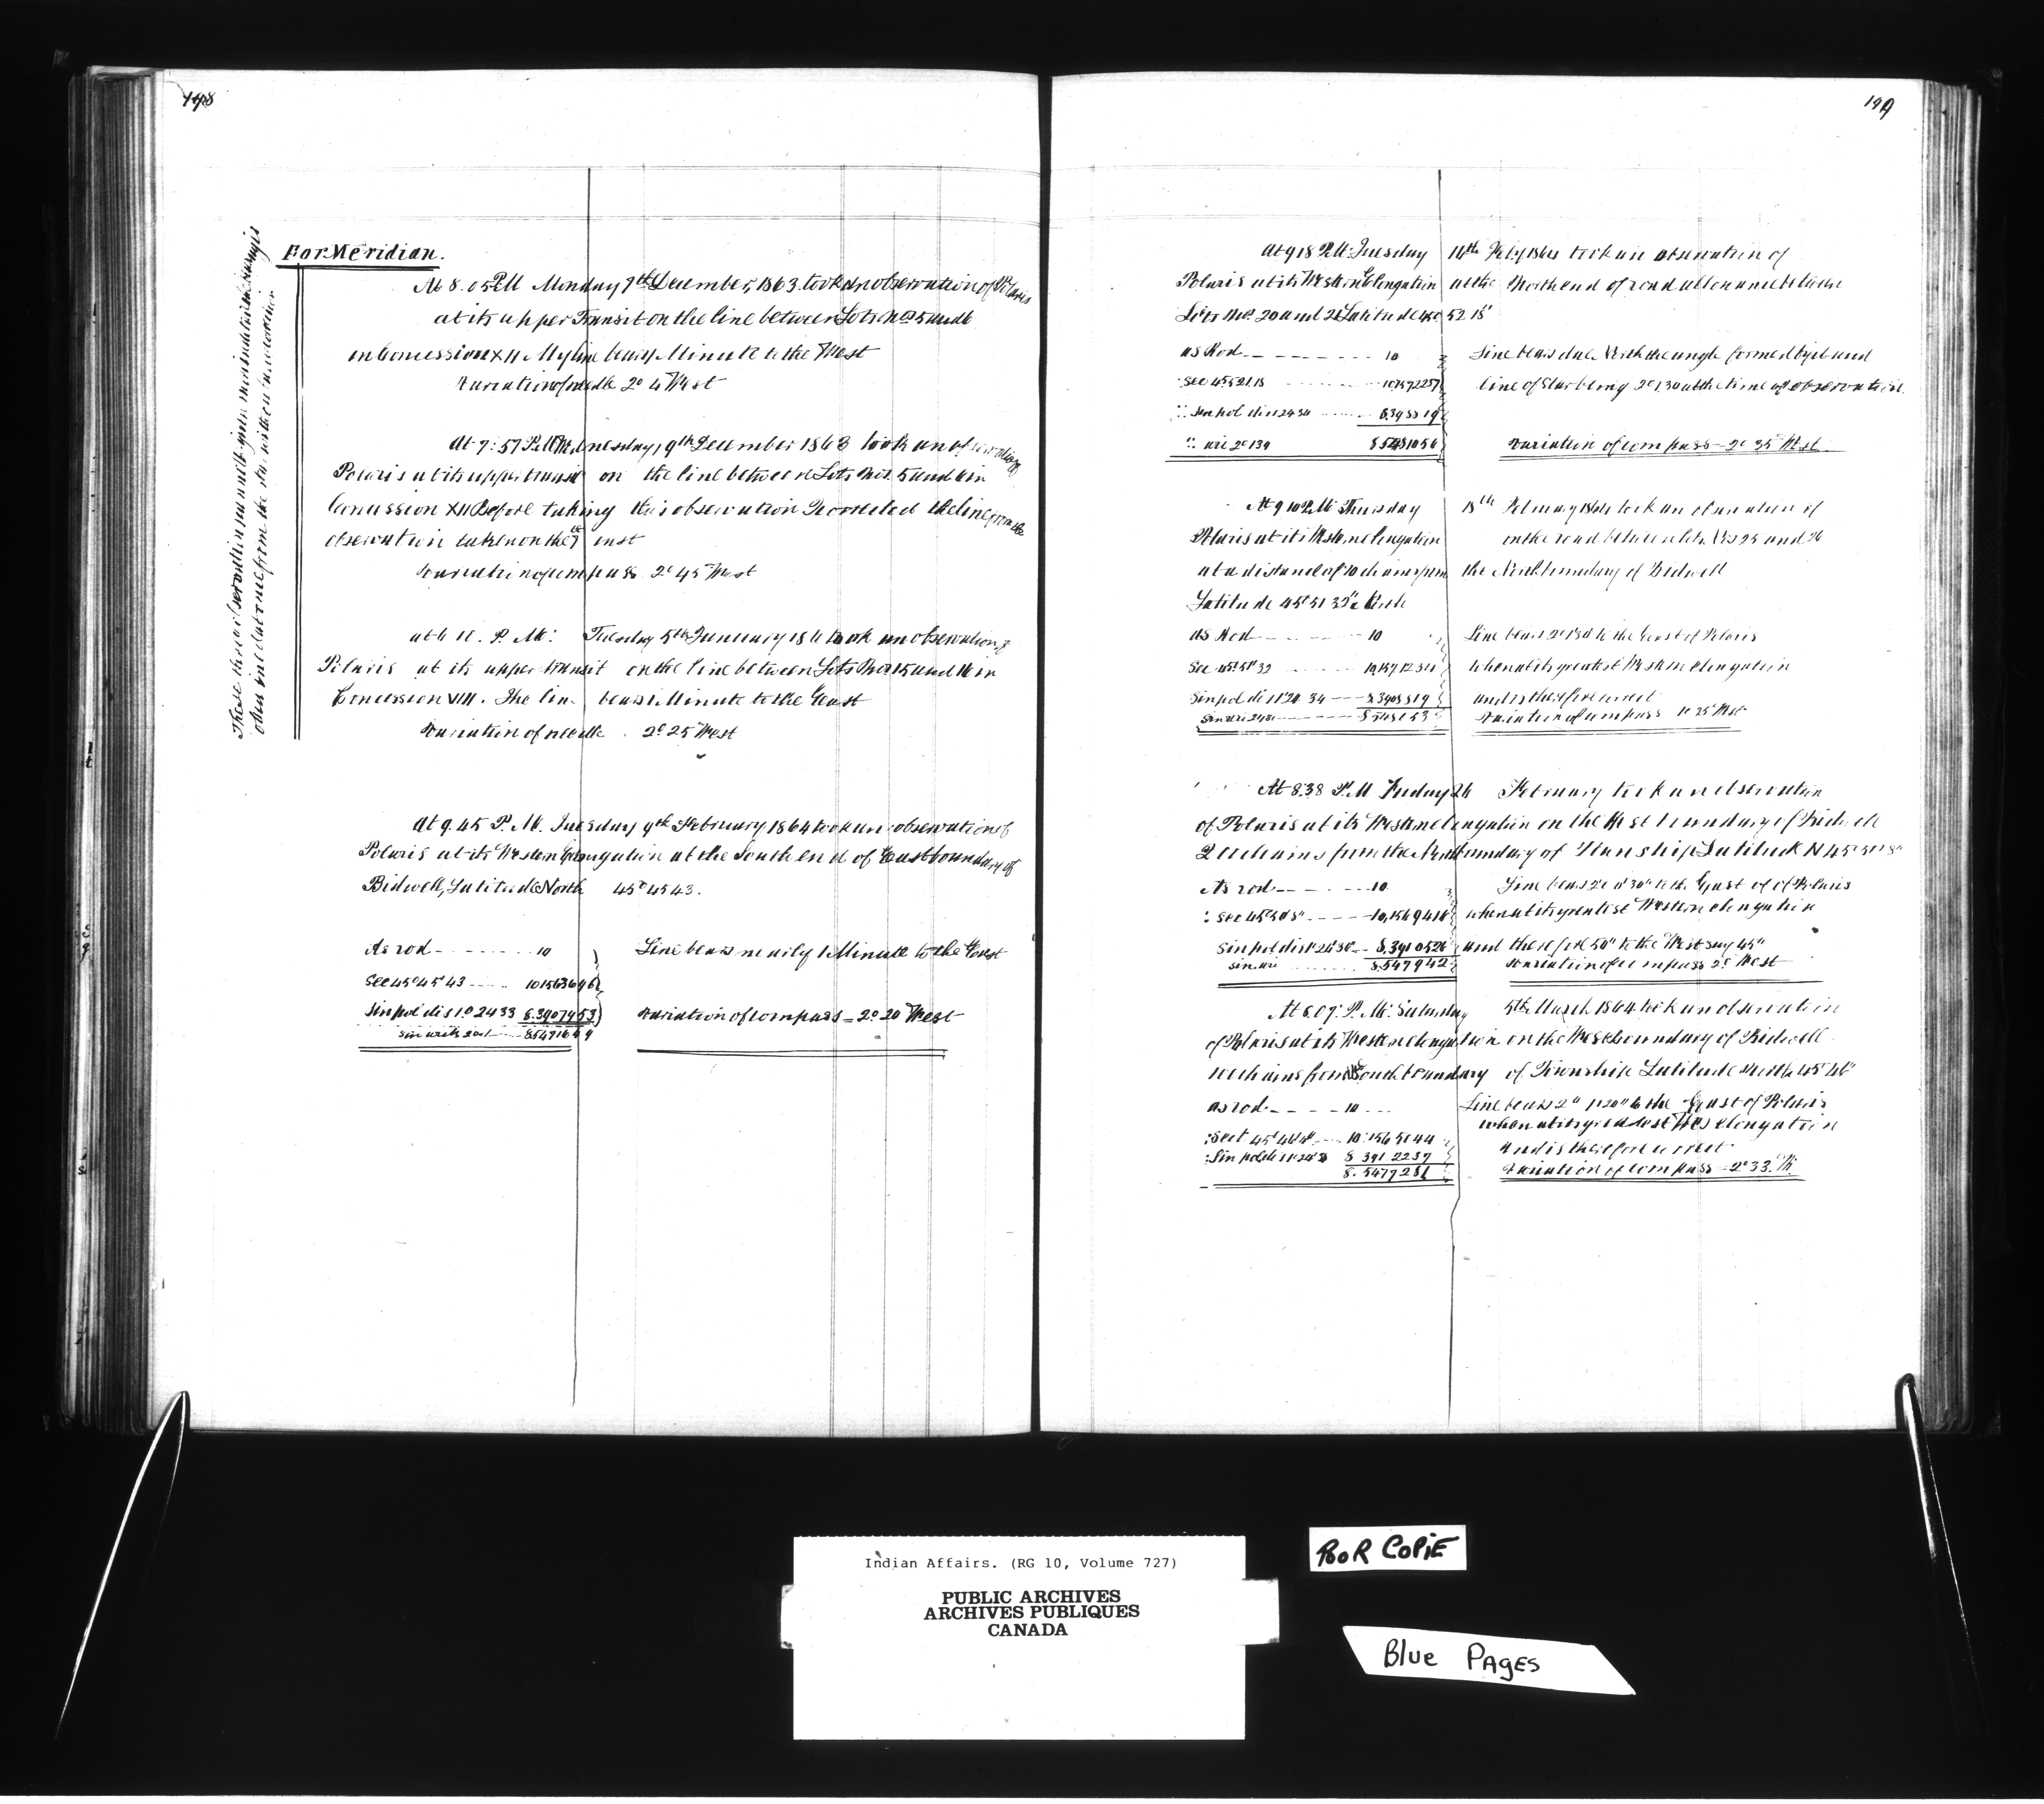 148
For Meridian.
At 8.05 P.M Monday 7th December, 1863. took an observation of Polaris
at its upper Transit on the line between Lots Nos 5 and 6
in Concession XII My line bears 1 Minute to the West
Variation of needle 2° 4 West
At 7:57 P.M. Wednesday, 9th December 1863 took an observation of
Polaris at its upper transit on the line between Lots Nos. 5 and 6 in
Concession XII Before taking this observation I corrected the line from the
observation taken on the 7th inst
Variation of compass 2° 45 West
at 6 P. M: Tuesday 5th January 1864 took an observation of
Polaris at its upper transit on the line between Lots Nos 15 and 16 in
Concession VIII. The line bears 1 Minute to the East
Variation of needle 2° 25 West
At 9.45 P. M. Tuesday 9th February 1864 took an observation of
Polaris at its Western Elongation at the South end of East boundary of
Bidwell, Latitude North 45° 45 43.
As rad 10
Line bears nearly 1 Minute to the East
Sec 45° 45' 43 10.1563696
Sin pol dis 1° 24 33 8.3907953
Variation of compass = 2° 20 West
8.5471649
These three observations
149
At 9 18 P.M. Tuesday 16th Feby 1864 took an observation of
Polaris at its Western Elongation at the North end of road allowance between
Lots Nos. 20 and 21 Latitude 45° 52 15"
as Rad 10
Line bears due North the angle formed by it and
Sec 45° 52 15
line of Star being 2° 1.30 at the time of observation
Sin pol dis
Variation of compass = 2° 35' West
At 9 10 P.M. Thursday 18th February 1864 took an observation of
Polaris at its Western elongation on the road between lots Nos 25 and 26
at a distance of 10 chains from the North boundary of Bidwell
Latitude 45° 51 39" North
as Rad 10
Line bears to the East of Polaris
Sec 45° 51' 39
when at its greatest Western elongation
Sin pol dis 1° 24 34
and is therefore correct
Variation of compass 25' West
At 8.38 P.M Friday 26 February took an observation
of Polaris at its Western elongation on the West boundary of Bidwell
chains from the North boundary of Township Latitude N 45°
As rad 10
Line bears to the East of Polaris
when at its greatest Western elongation
Sin pol dis 1° 24' 38" 8.3910526
and therefore 50" to the West say 45"
8.547942
Variation of compass 2° West
At 8.07 P. M. Saturday 5th March 1864 took an observation
of Polaris at its Western elongation on the West boundary of Bidwell
10 chains from the South boundary of Township Latitude North 45° 46'
as rad 10
Line bears 2° 1' 20" to the East of Polaris
when at its greatest Wes elongation
10.1565044
and is therefore correct
Sin pol dis 8.3912237
Variation of compass = 2° 33. W
8.5477281
Indian Affairs. (RG 10, Volume 727)
PUBLIC ARCHIVES
ARCHIVES PUBLIQUES
CANADA
POOR COPIE
Blue PAGES